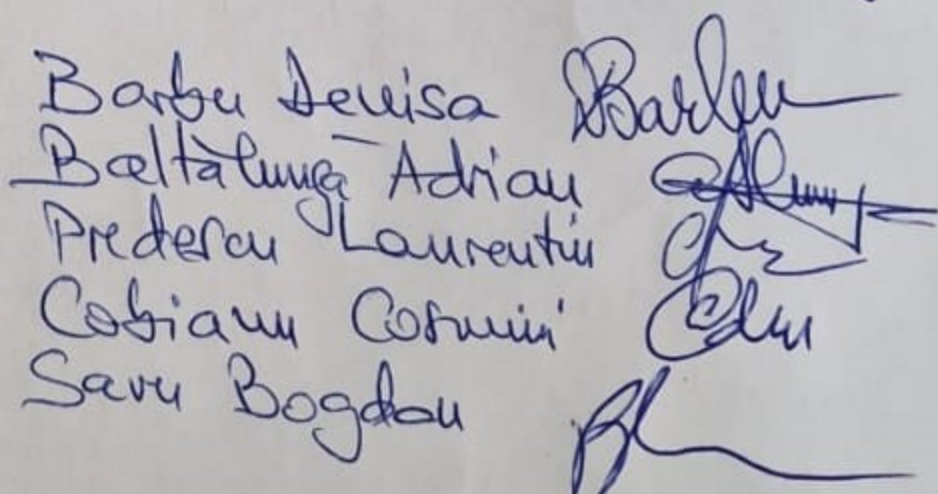 Barbu Denisa DBarbu
Baltălungă Adrian
Predescu Laurentiu
Cobianu Cosmin
Savu Bogdan